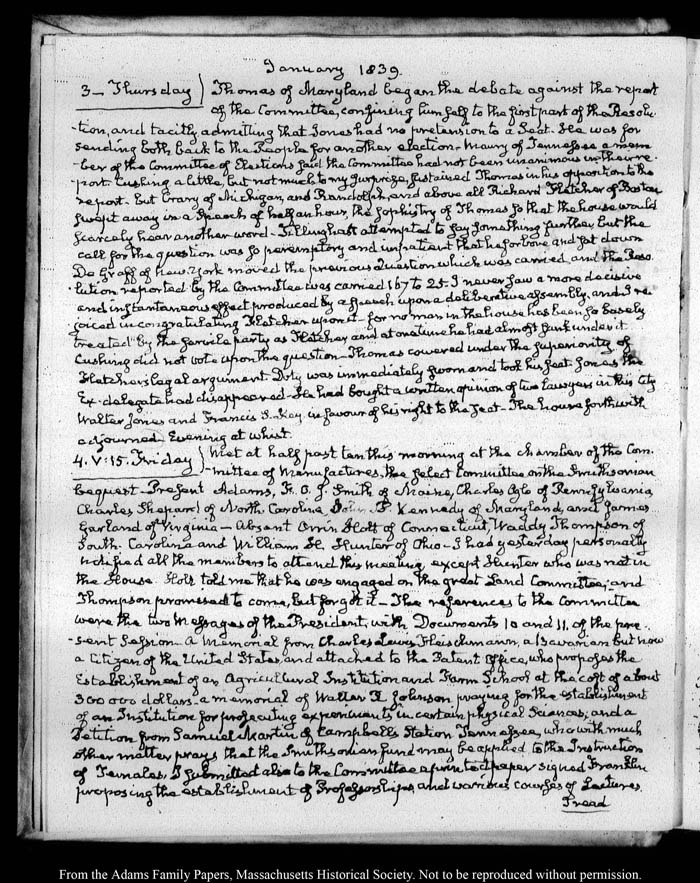 January 1839.
3 – Thursday) Thomas of Maryland began the debate against the report
of the Committee, confining himself to the first part of the Resolu-
-tion, and tacitly admitting that Jones had no pretension to a Seat. He was for
sending both back to the People for another election – Maury of Tennessee a mem-
ber of the Committee of Elections said the Committee had not been unanimous in their re-
-port. Cushing a little, but not much to my surprize, sustained Thomas in his opposition to the
report. But Crary of Michigan, and Randolph, and above all Richard Fletcher of Boston
swept away in a Speech of half an hour, the sophistry of Thomas so that the house would
scarcely hear another word – Tillinghast attempted to say something further but the
call for the question was so peremptory and impatient that he forbore and sat down
De Graff of New-York moved the previous Question which was carried, and the Reso-
-lution reported by the Committee was carried 167 to 25. I never saw a more decisive
and instantaneous effect produced by a speech upon a deliberative assembly, and I re-
joiced in congratulating Fletcher upon it – for no man in the house has been so basely
treated by the servile party as Fletcher and at one time he had almost sunk under it
Cushing did not vote upon the question – Thomas cowered under the superiority of
Fletcher's legal argument. Doty was immediately sworn and took his seat. Jones the
Ex-delegate had disappeared – He had bought a written opinion of two lawyers in this City
Walter Jones and Francis S. Key, in favour of his right to the Seat – The house forthwith
adjourned – Evening at whist.
4. V:15. Friday) Met at half past ten this morning at the chamber of the Com-
-mittee of Manufactures, the select Committee on the Smithsonian
bequest – Present Adams, F. O. J. Smith of Maine, Charles Ogle of Pennsylvania
Charles Shepard of North Carolina, John P. Kennedy of Maryland, and James
Garland of Virginia – absent Orrin Holt of Connecticut, Waddy Thompson of
South Carolina and William H. Hunter of Ohio – I had yesterday personally
notified all the members to attend this meeting, except Hunter who was not in
the House. Holt told me that he was engaged on the great Land Committee, and
Thompson promised to come, but forgot it – The references to the Committee
were the two Messages of the President, with Documents 10 and 11. of the pre-
-sent Session – A Memorial from Charles Lewis Fleischmann, a Bavarian but now
a Citizen of the United States, and attached to the Patent Office, who proposes the
Establishment of an Agricultural Institution and Farm School at the cost of about
300 000 dollars – a memorial of Walter R Johnson praying for the establishment
of an Institution for prosecuting experiments in certain physical Sciences, and a
Petition from Samuel Martin of Campbells Station Tennessee, who with much
other matter prays that the Smithsonian fund may be applied to the Instruction
of Females. I submitted also to the Committee a printed paper signed Franklin
proposing the establishment of Professorships, and various courses of Lectures.
I read
From the Adams Family Papers, Massachusetts Historical Society. Not to be reproduced without permission.